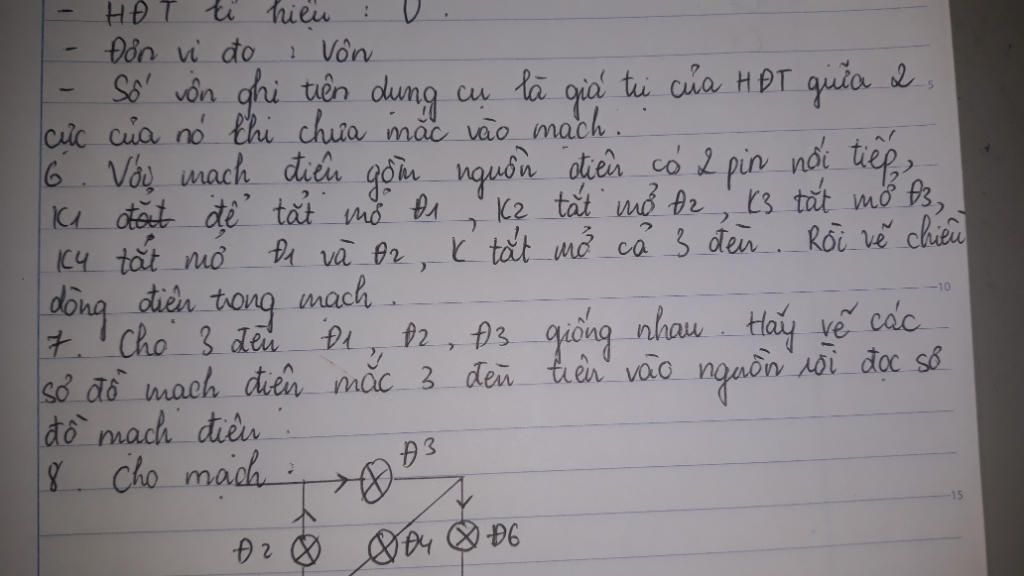 - HĐT kí hiệu : U.
- Đơn vị đo : Vôn
- Số vôn ghi trên dụng cụ là giá trị của HĐT giữa 2
cực của nó khi chưa mắc vào mạch.
6. Vẽ mạch điện gồm nguồn điện có 2 pin nối tiếp,
K1 để tắt mở Đ1, K2 tắt mở Đ2, K3 tắt mở Đ3,
K4 tắt mở Đ1 và Đ2, K tắt mở cả 3 đèn. Rồi vẽ chiều
dòng điện trong mạch.
7. Cho 3 đèn Đ1, Đ2, Đ3 giống nhau. Hãy vẽ các
sơ đồ mạch điện mắc 3 đèn trên vào nguồn rồi đọc sơ
đồ mạch điện.
8. Cho mạch :
Đ3
Đ2 Đ4 Đ6